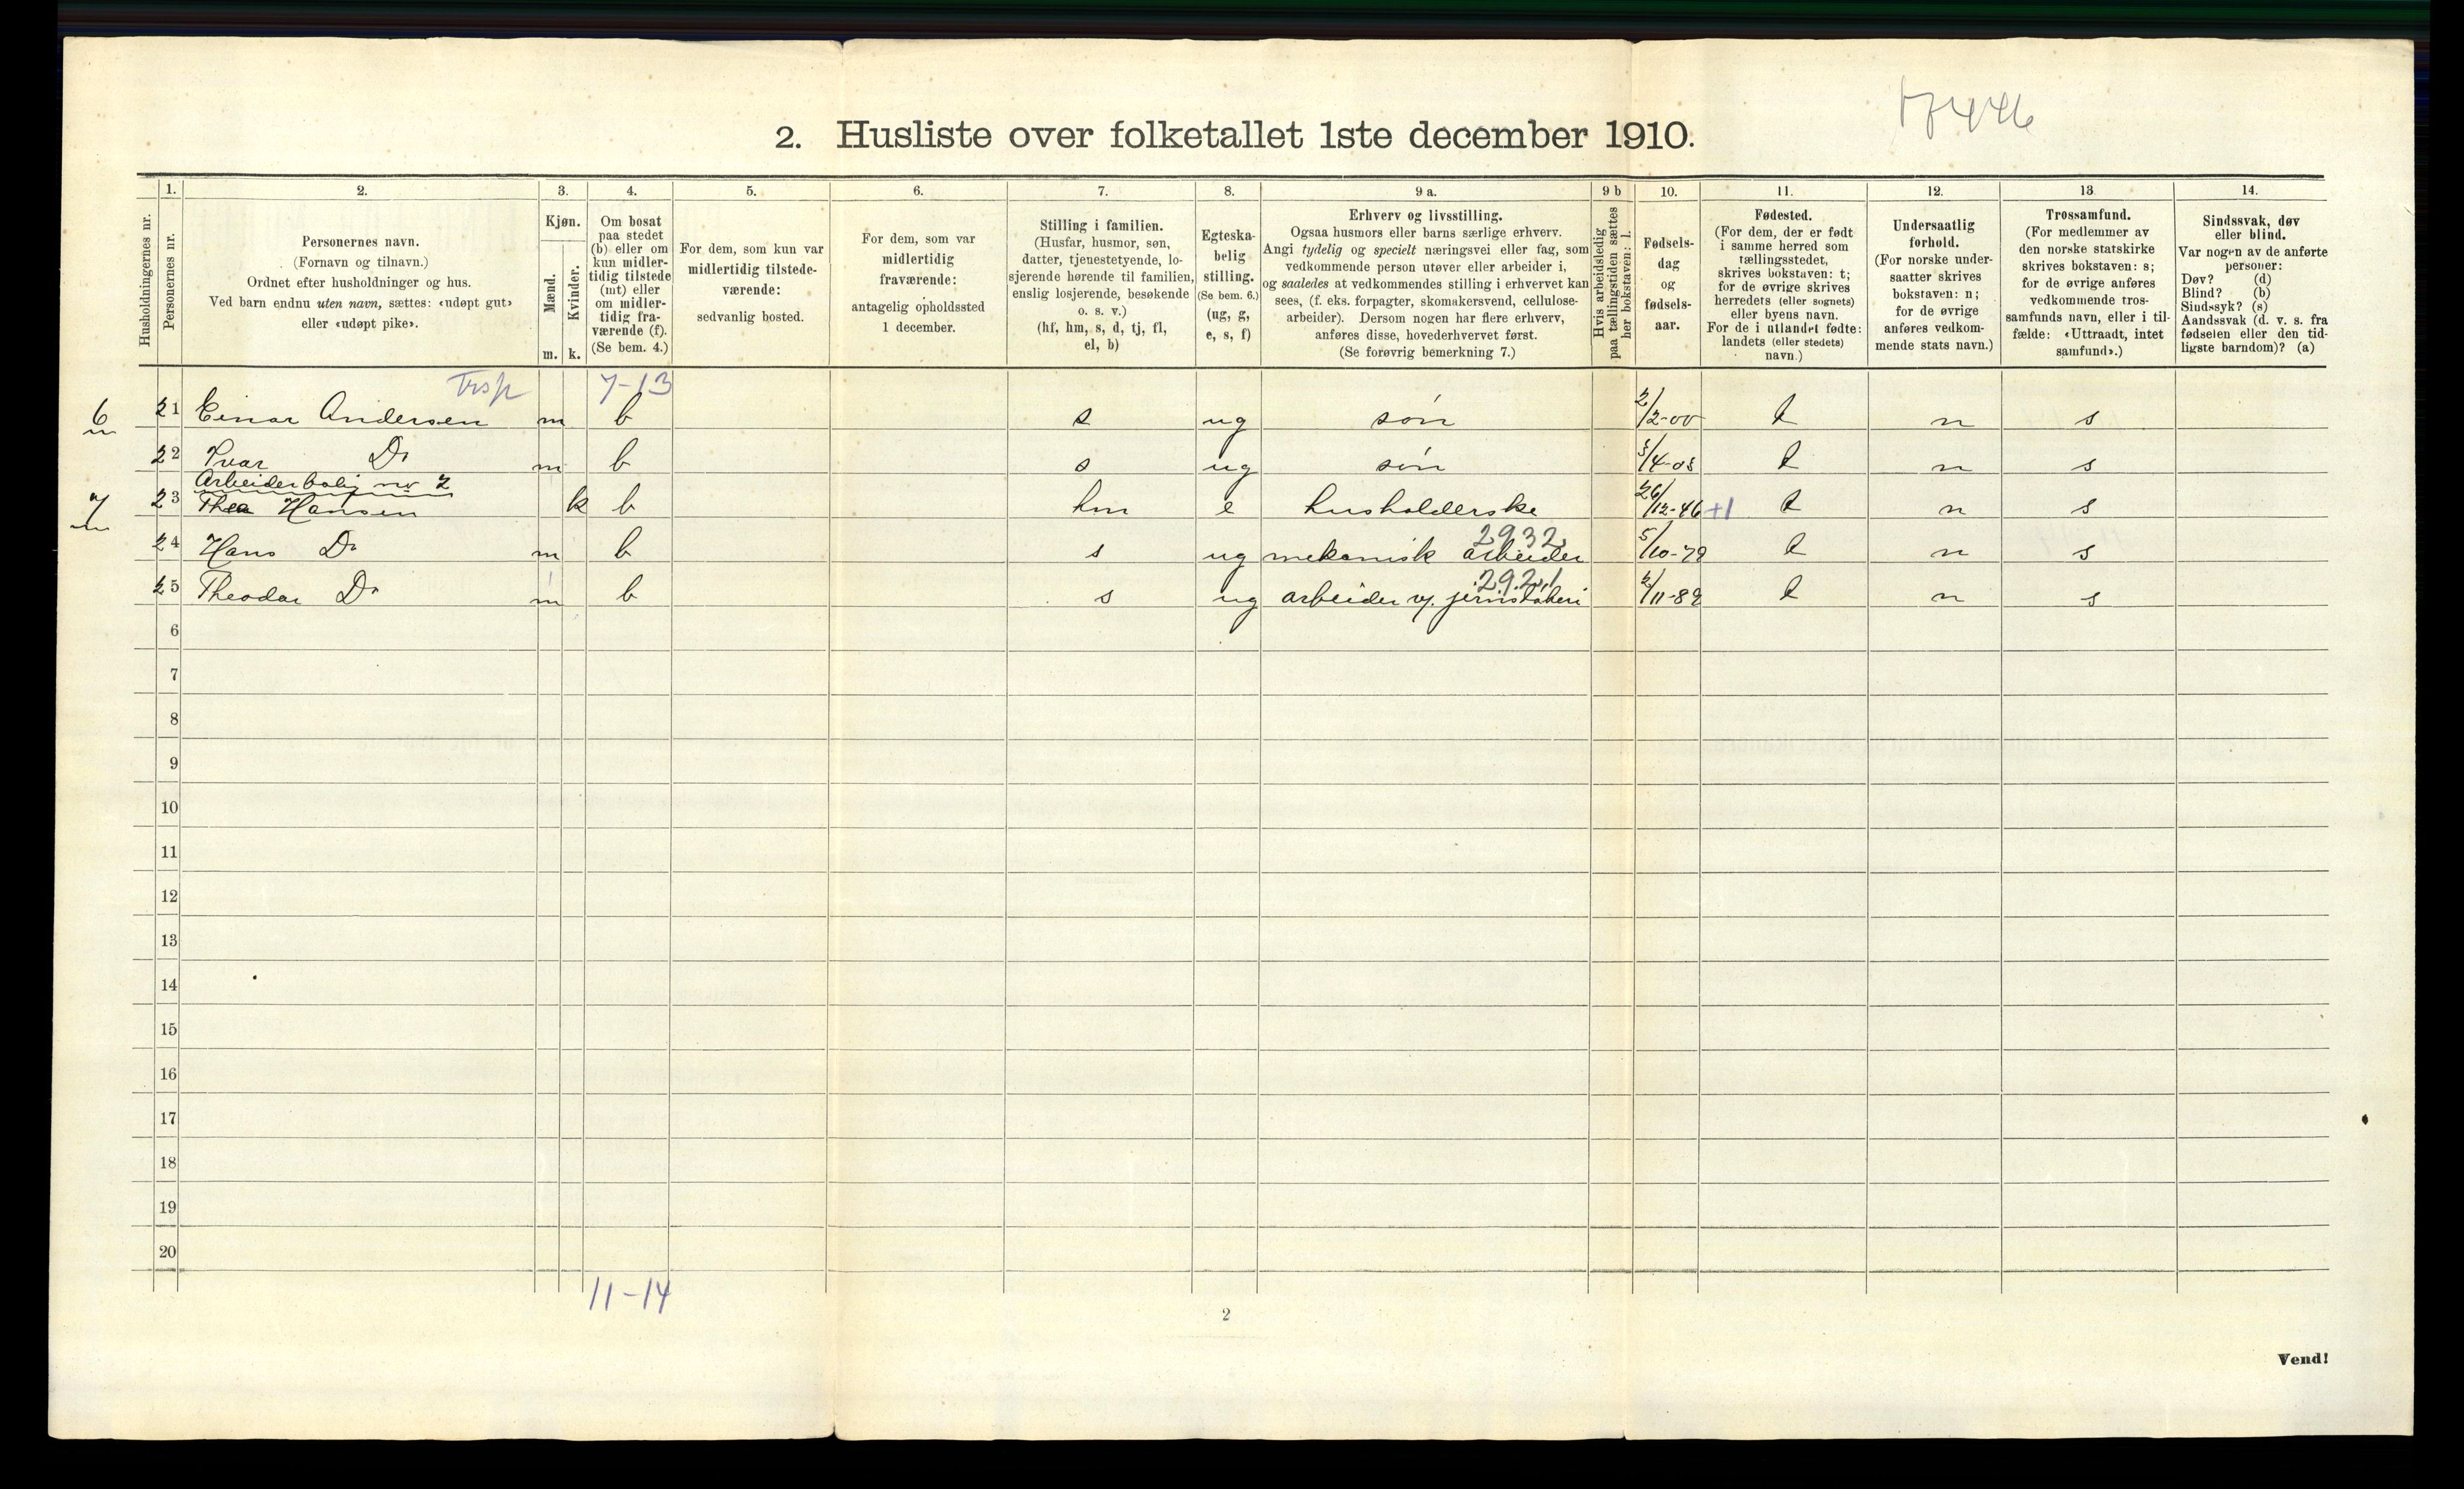 17446
2. Husliste over folketallet 1ste december 1910.
1. 2. 3. 4. 5. 6. 7. 8. 9 a. 9 b 10. 11. 12. 13 14.
Husholdningernes nr.
Personernes nr.
Personernes navn.
(Fornavn og tilnavn.)
Ordnet efter husholdninger og hus.
Ved barn endnu uten navn, sættes: «udøpt gut»
eller «udøpt pike».
Kjøn.
Mænd.
Kvinder.
m. k.
Om bosat
paa stedet
(b) eller om
kun midler-
tidig tilstede
(mt) eller
om midler-
tidig fra-
værende (f).
(Se bem. 4.)
For dem, som kun var
midlertidig tilstede-
værende:
sedvanlig bosted.
For dem, som var
midlertidig
fraværende:
antagelig opholdssted
1 december.
Stilling i familien.
(Husfar, husmor, søn,
datter, tjenestetyende, lo-
sjerende hørende til familien,
enslig losjerende, besøkende
o. s. v.)
(hf, hm, s, d, tj, fl,
el, b)
Egteska-
belig
stilling.
(Se bem. 6.)
(ug, g,
e, s, f)
Erhverv og livsstilling.
Ogsaa husmors eller barns særlige erhverv.
Angi tydelig og specielt næringsvei eller fag, som
vedkommende person utøver eller arbeider i,
og saaledes at vedkommendes stilling i erhvervet kan
sees, (f. eks. forpagter, skomakersvend, cellulose-
arbeider). Dersom nogen har flere erhverv,
anføres disse, hovederhvervet først.
(Se forøvrig bemerkning 7.)
Hvis arbeidsledig
paa tællingstiden sættes
her bokstaven: l.
Fødsels-
dag
og
fødsels-
aar.
Fødested.
(For dem, der er født
i samme herred som
tællingsstedet,
skrives bokstaven: t;
for de øvrige skrives
herredets (eller sognets)
eller byens navn.
For de i utlandet fødte:
landets (eller stedets)
navn.)
Undersaatlig
forhold.
(For norske under-
saatter skrives
bokstaven: n;
for de øvrige
anføres vedkom-
mende stats navn.)
Trossamfund.
(For medlemmer av
den norske statskirke
skrives bokstaven: s;
for de øvrige anføres
vedkommende tros-
samfunds navn, eller i til-
fælde: «Uttraadt, intet
samfund».)
Sindssvak, døv
eller blind.
Var nogen av de anførte
personer:
Døv? (d)
Blind? (b)
Sindssyk? (s)
Aandssvak (d. v. s. fra
fødselen eller den tid-
ligste barndom)? (a)
7-13
6 21 Einar Andersen m b s ug søn 2/2-00 t n s
22 Ivar Do m b s ug søn t n s
Arbeiderbolig no 2
7 23 Thea Hansen k b hm e husholderske 26/12-46 +1 t n s
2932
24 Hans Do m b s ug mekanisk arbeider 5/10-79 t n s
292,1
25 Theodor Do m b s ug arbeider v. jernstøberi 2/11-89 t n s
6
7
8
9
10
11
12
13
14
15
16
17
18
19
20
11-14
2
Vend!